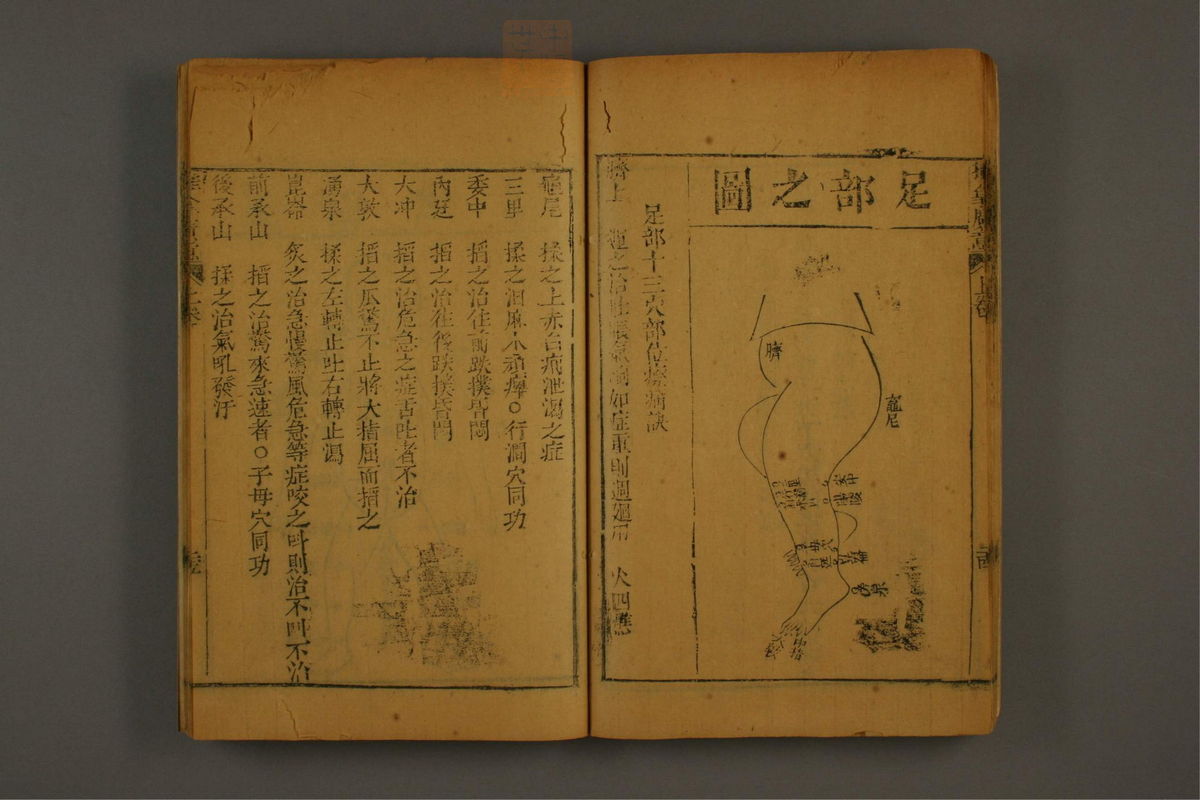 足部之圖
臍
龜尾
委中
足部十三穴部位療病訣
臍上 運之治肚脹氣 如症重則過 用 火四
龜尾 揉之止赤白痢泄瀉之症
三里 揉之治麻木頑痺〇行澗穴同功
委中 掐之治往前跌撲昏悶
內廷 掐之治往後跌撲昏悶
大冲 掐之治危急之症舌吐者不治
大敦 掐之爪驚不止將大指屈而掐之
湧泉 揉之左轉止吐右轉止瀉
崑崙 灸之治急慢驚風危急等症咬之叫則治不叫不治
前承山 掐之治驚來急速者〇子母穴同功
後承山 揉之治氣吼發汗